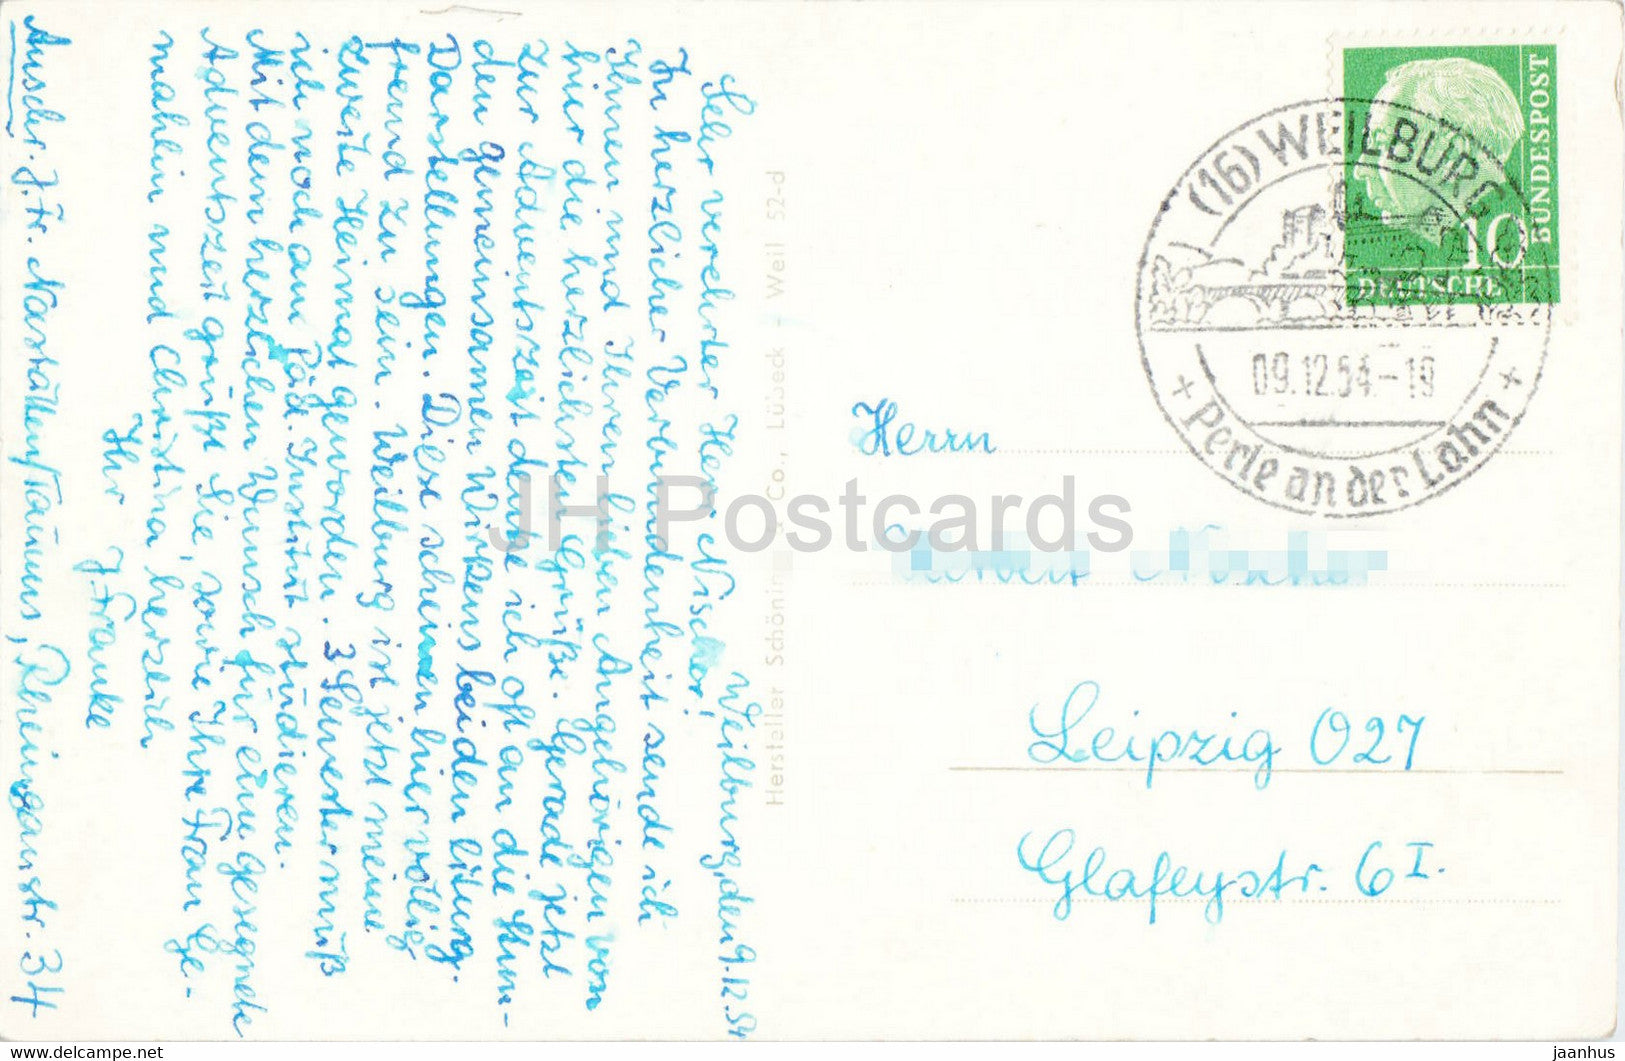 Weilburg, den 9.12.54
Sehr verehrter Herr Nischer!
In herzlicher Verbundenheit sende ich
Ihnen und Ihren lieben Angehörigen von
hier die herzlichsten Grüße. Gerade jetzt
zur Adventszeit denke ich oft an die Stun-
den gemeinsamen Wirkens bei den liturg.
Darstellungen. Diese scheinen hier völlig
fremd zu sein. Weilburg ist jetzt meine
zweite Heimat geworden. 3 Semester muß
ich noch am Päd. Institut studieren.
Mit dem herzlichen Wunsch für eine gesegnete
Adventszeit grüßt Sie, sowie Ihre Frau Ge-
mahlin und Christina herzlich
Ihr J. Franke
Anschr. J. Fr. Nastätten/Taunus, Rheingaustr. 34
Hersteller Schöning & Co., Lübeck - Weil 52-d
BUNDESPOST
10
DEUTSCHE
(16) WEILBURG
09.12.54.-19
+ Perle an der Lahn +
Herrn
Leipzig O27
Glafeystr. 6 I.
JH Postcards
www.delcampe.net
jaanhus